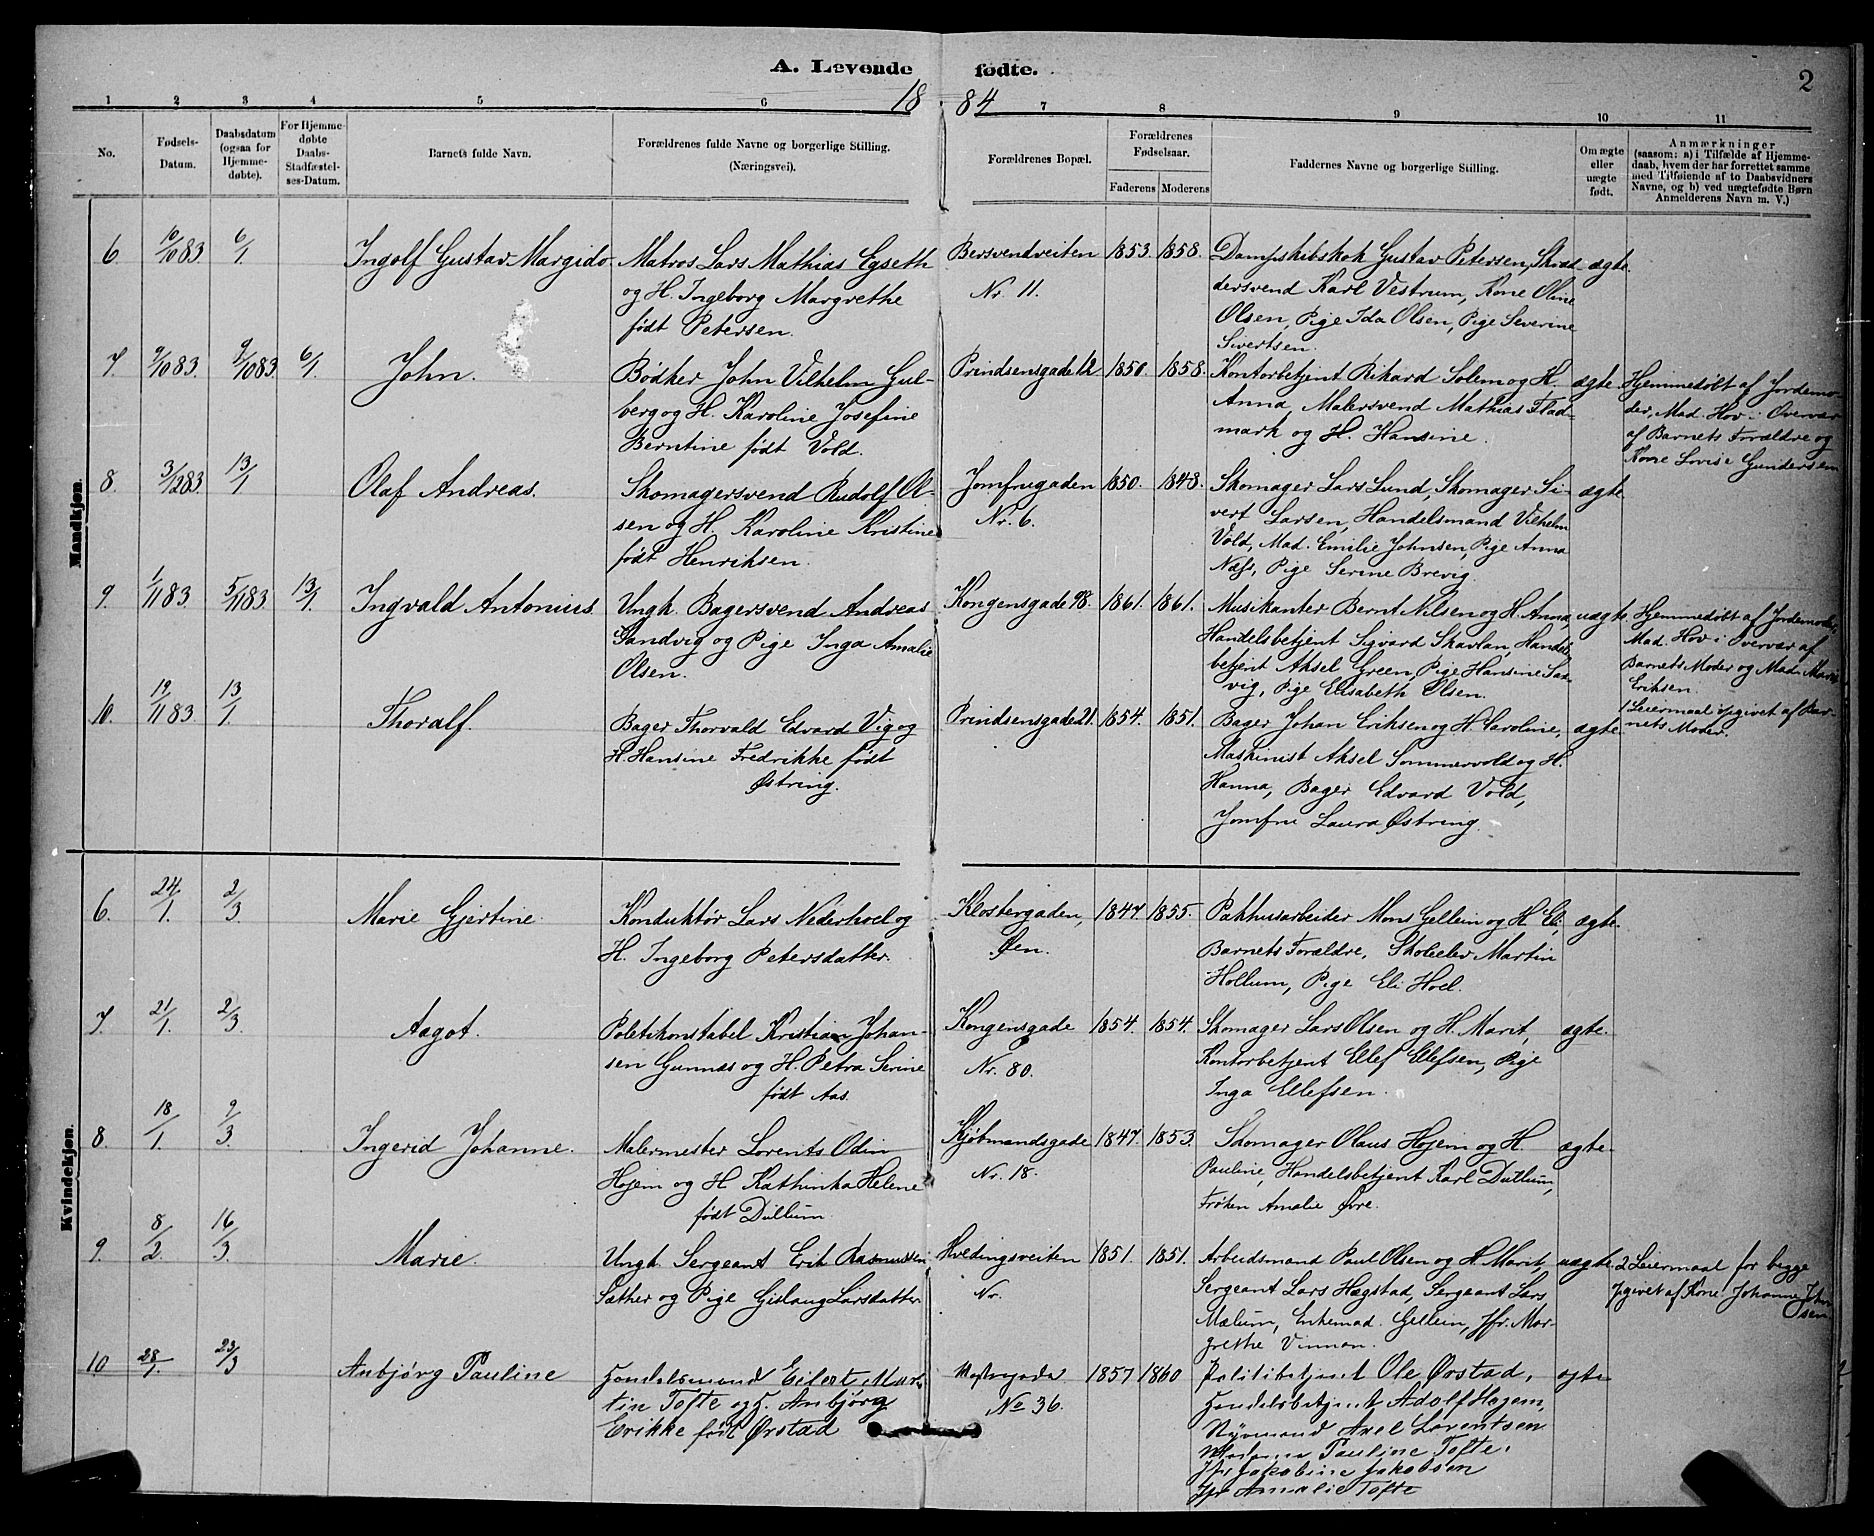 A. Levende fødte.
1884
2
1 2 3 4 5 6 7 8 9 10 11
No.
Fødsels-Datum.
Daabsdatum (ogsaa for Hjemme-døbte).
For Hjemme-døbte Daabs-Stadfæstel-ses-Datum.
Barnets fulde Navn.
Forældrenes fulde Navne og borgerlige Stilling.
(Næringsvei).
Forældrenes Bopæl.
Forældrenes Fødselsaar.
Faderens Moderens
Faddernes Navne og borgerlige Stilling.
Om ægte eller uægte født.
Anmærkninger
(saasom: a) i Tilfælde af Hjemme-
daab, hvem der har forrettet samme
med Tilføiende af to Daabsvidners
Navne, og b) ved uægtefødte Børn
Anmelderens Navn m. V.)
Mandkjøn.
6. 10/10 83. 6/1 Ingolf Gustav Margido. Matros Lars Mathias Egseth Bersvendveiten 1853. 1858. Dampskibskok Gustav Petersen, Skræd- ægte.
og H. Ingeborg Margrethe Nr. 11. dersvend Karl Vestrum, Kone Oline
født Petersen. Olsen, Pige Ida Olsen, Pige Severine
Sivertsen.
7. 9/10 83. 9/10 83. 6/1. John. Bødker John Vilhelm Gul- Prindsensgade 12 1850. 1858. Kontorbetjent Rikard Solem og H. ægte Hjemmedøbt af Jordemo-
berg og H. Karoline Josefine Anna, Malersvend Mathias Flad- der, Mad. Hov i Overvær
Berntine født Vold. mark og H. Hansine. af Barnets Forældre og
Kone Lovise Gundersen
8. 3/12 83. 13/1 Olaf Andreas. Skomagersvend Rudolf Ol- Jomfrugaden 1850. 1848. Skomager Lars Lund, Skomager Si- ægte
sen og H. Karoline Kristine Nr. 6. vert Larsen, Handelsmand Vilhelm
født Henriksen. Vold, Mad. Emilie Johnsen, Pige Anna
Næss, Pige Serine Brevig.
9. 1/11 83. 5/11 83. 13/1. Ingvald Antonius. Ungk. Bagersvend Andreas Kongensgade 98. 1861. 1861. Musikanter Bernt Nilsen og H. Anna uægte. Hjemmedøbt af Jordemoder,
Sandvig og Pige Inga Amalie Handelsbetjent Sigvard Skavlan, Handels- Mad. Hov i Overvær af
Olsen. betjent Aksel Green, Pige Hansine San- Barnets Moder og Mad. Marie
vig, Pige Elisabeth Olsen. Eriksen.
1 Leiermaal opgivet af Bar-
nets Moder.
10. 19/11 83 13/1. Thoralf. Bager Thorvald Edvard Vig og Prindsensgade 21. 1854. 1851. Bager Johan Eriksen og H. Caroline, ægte.
H. Hansine Fredrikke født Maskinist Aksel Sommervold og H.
Østring. Hanna, Bager Edvard Vold,
Jomfru Laura Østring.
Kvindekjøn.
6. 24/1. 2/3. Marie Gjertine. Konduktør Lars Nederhoel og Klostergaden, 1847. 1855. Pakhusarbeider Mons Gellein og H. Eli, ægte.
H. Ingeborg Petersdatter. Øen. Barnets Forældre, Skoleelev Martin
Hollum, Pige Eli Hoel.
7. 21/1. 2/3. Aagot. Politikonstabel Kristian Johan- Kongensgade 1854. 1854. Skomager Lars Olsen og H. Marit, ægte.
sen Gunnæs og H. Petra Serine Nr. 80. Kontorbetjent Ellef Ellefsen, Pige
født Aas. Inga Ellefsen.
8. 18/1. 9/3. Ingerid Johanne. Malermester Lorents Odin Kjøbmandsgade 1847. 1853. Skomager Olaus Hojem og H. ægte.
Hojem og H. Kathinka Helene Nr. 18. Pauline, Handelsbetjent Karl Dullum,
født Dullum. Frøken Amalie Øvre.
9. 8/2. 16/3. Marie. Ungk. Sergeant Erik Rasmussen Hvedingsveiten 1851. 1851. Arbeidsmand Paul Olsen og H. Marit, uægte. 2 Leiermaal for begge
Sæther og Pige Gislaug Larsdatter. Nr. Sergeant Lars Hægstad, Sergeant Lars opgivet af Kone Johanne John
Mælum, Enkemad. Gellein, Jfr. Mar- sen
grethe Vinnan.
10 28/1. 23/3 Anbjørg Pauline Handelsmand Eilert Mar- 1857 1860 Politibetjent Ole Ørstad, ægte
tin Tofte og H. Anbjørg No 36. Handelsbetjent Adolf Hojem,
Erikke født Ørstad Axel Lorentsen
Madame Pauline Tofte,
Jfr Jakobine Jakobsen
Jfr Amalie Tofte